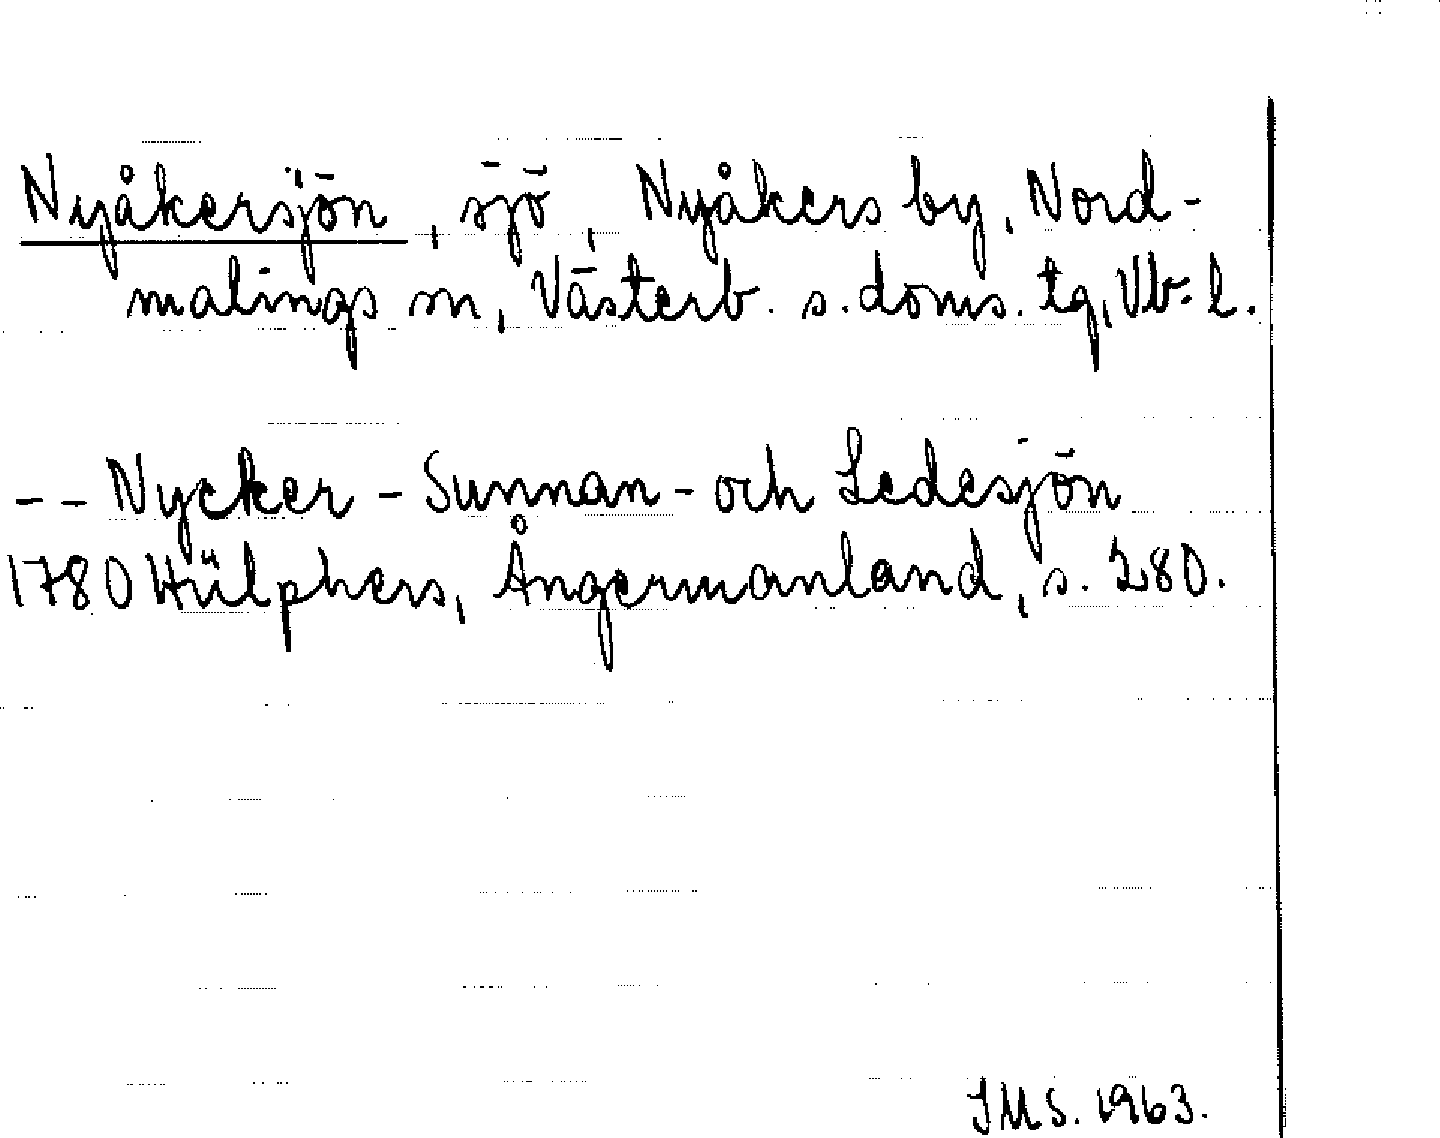 Nyåkersjön, sjö, Nyåkers by, Nord-
malings sn, Västerb. s. doms. tg, Vb. l.
-- Nycker - Sunnan - och Ledesjön
1780 Hülphers, Ångermanland, s. 280.
JMS. 1963.